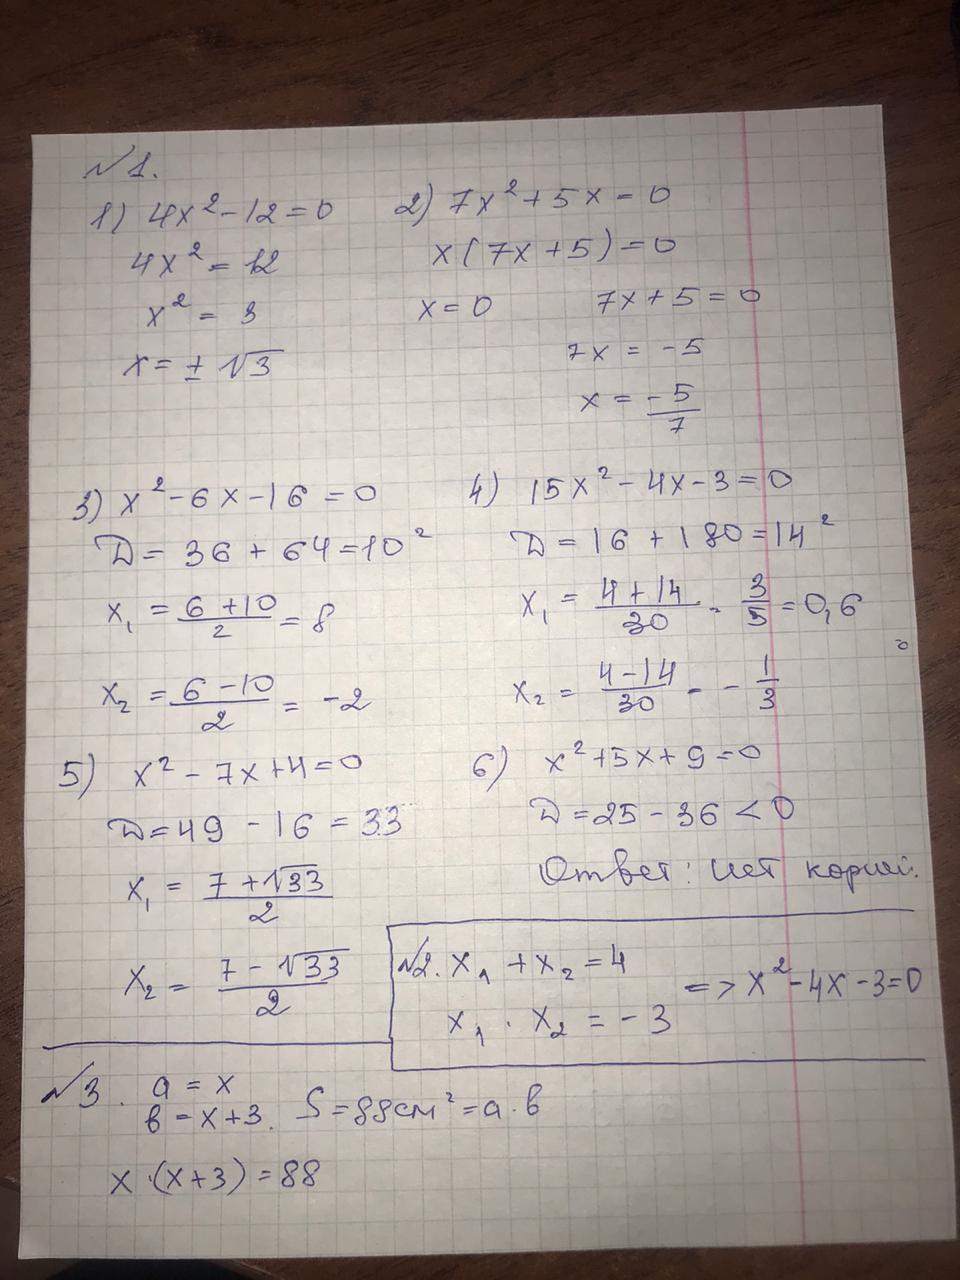 №1.
1) 4x² - 12 = 0
4x² = 12
x² = 3
x = ± √3
2) 7x² + 5x = 0
x(7x + 5) = 0
x = 0 7x + 5 = 0
7x = -5
x = -5/7
3) x² - 6x - 16 = 0
D = 36 + 64 = 10²
x₁ = (6 + 10)/2 = 8
x₂ = (6 - 10)/2 = -2
4) 15x² - 4x - 3 = 0
D = 16 + 180 = 14²
x₁ = (4 + 14)/30 = 3/5 = 0,6
x₂ = (4 - 14)/30 = - 1/3
5) x² - 7x + 4 = 0
D = 49 - 16 = 33
x₁ = (7 + √33)/2
x₂ = (7 - √33)/2
6) x² + 5x + 9 = 0
D = 25 - 36 < 0
Ответ: нет корней.
№2. x₁ + x₂ = 4
x₁ · x₂ = -3
=> x² - 4x - 3 = 0
№3. a = x
b = x + 3. S = 88 см² = a · b
x · (x + 3) = 88